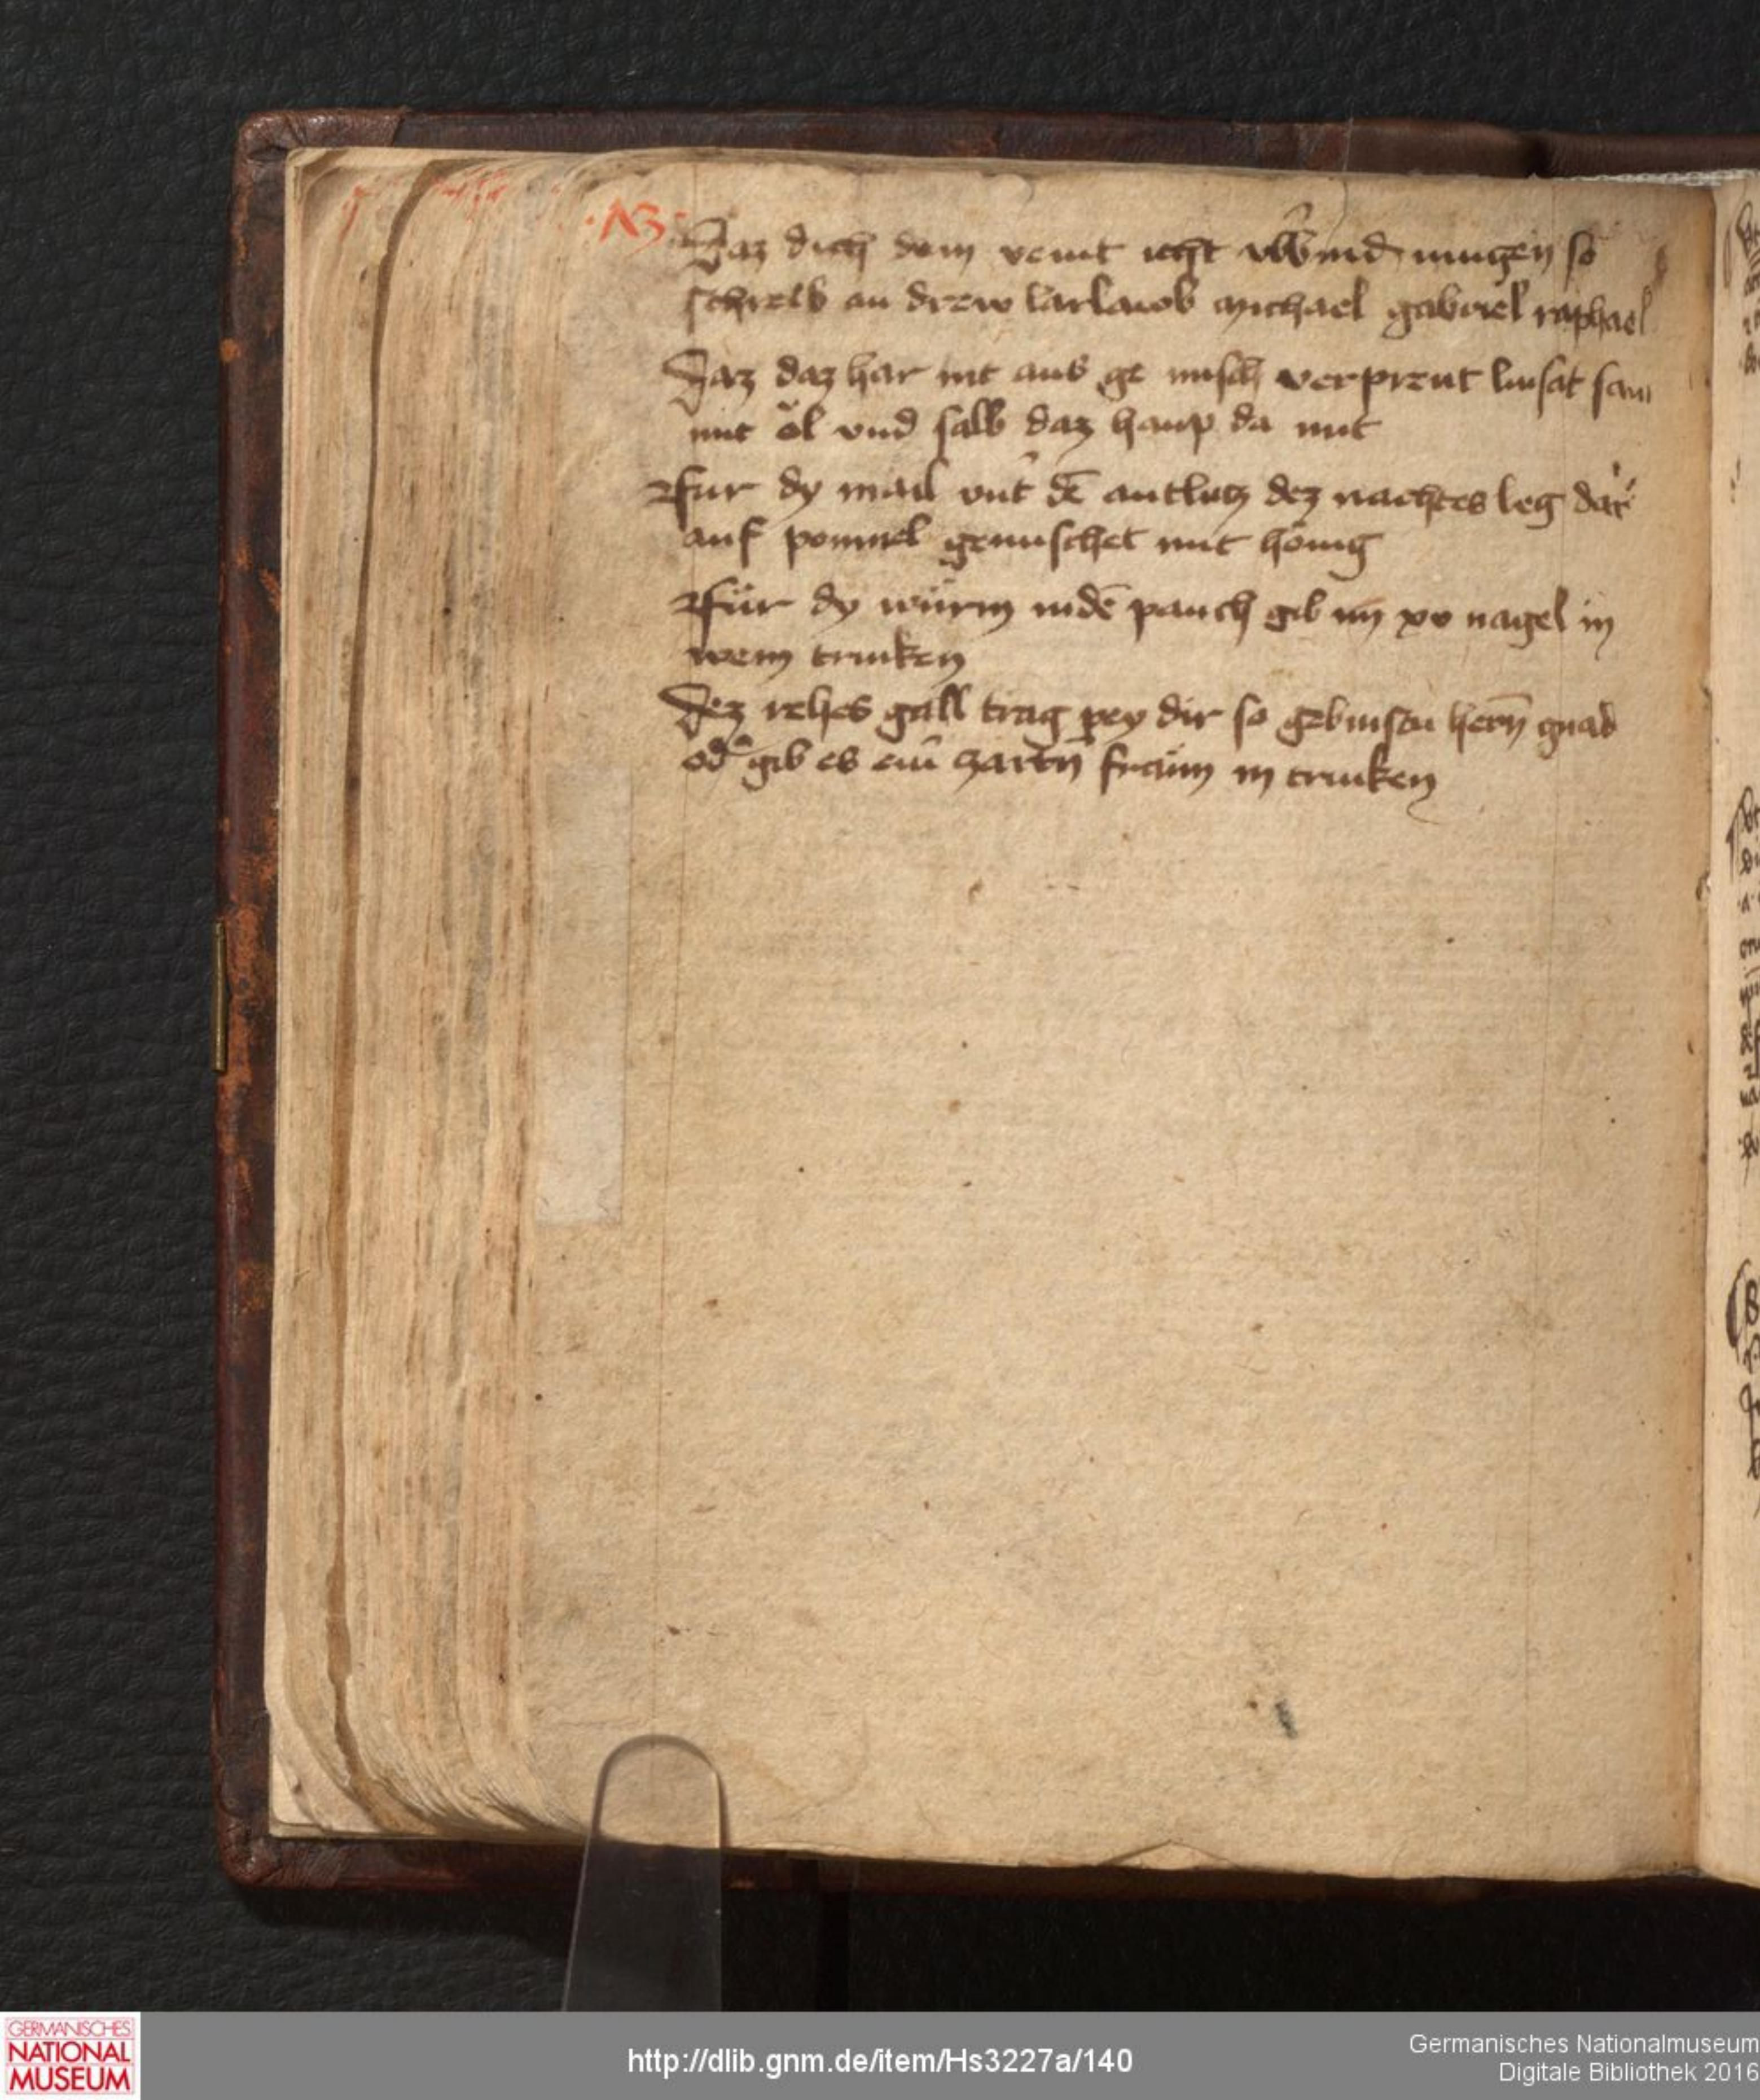 Daz dich dein veint icht vb̂wind mugen so
schreib an drew larlaub michael gabriel raphael
Daz daz har nit aus ge misch verprent linsat sam
mit öl vnd salb daz haup da mit
für dy mail vnt̂ dē antlutz dez nachtes leg dar
auf pommel gemischet mit honig
für dy würm indē pauch gib im xv nagel in
wein trinken
Dez rehes gall trag pey dir so gebinstu hern̄ gnad
od̂ gib es ein̂ zartn̄ fraün in trinken
GERMANISCHES
NATIONAL
MUSEUM
http://dlib.gnm.de/item/Hs3227a/140
Germanisches Nationalmuseum
Digitale Bibliothek 2016